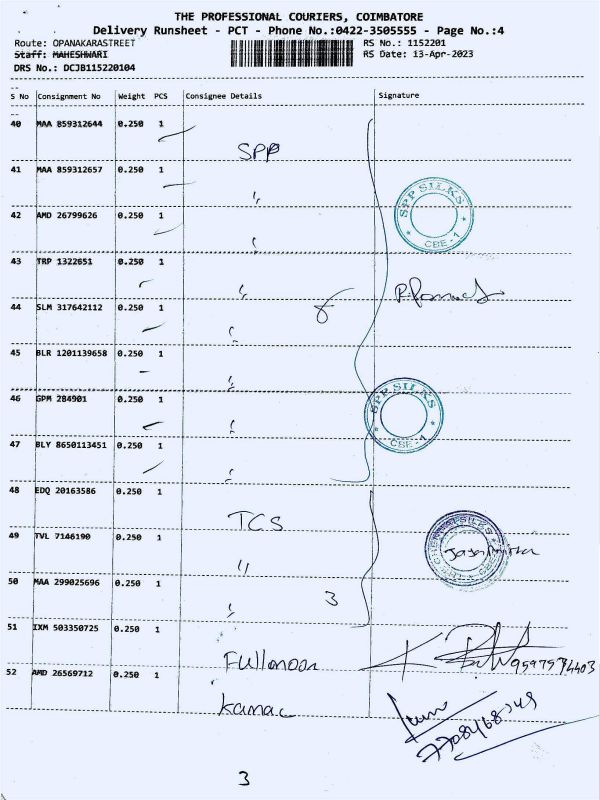 THE PROFESSIONAL COURIERS, COIMBATORE
Delivery Runsheet - PCT - Phone No.:0422-3505555 - Page No.:4
Route: OPANAKARASTREET RS No.: 1152201
Staff: MAHESHWARI RS Date: 13-Apr-2023
DRS No.: DCJB115220104
S No Consignment No Weight PCS Consignee Details Signature
40 MAA 859312644 0.250 1
SPP
41 MAA 859312657 0.250 1
SPP SILKS
CBE - 1
42 AMD 26799626 0.250 1
43 TRP 1322651 0.250 1
8
44 SLM 317642112 0.250 1
45 BLR 1201139658 0.250 1
46 GPM 284901 0.250 1
SPP SILKS
CBE - 1
47 BLY 8650113451 0.250 1
48 EDQ 20163586 0.250 1
TCS
49 TVL 7146190 0.250 1
"
50 MAA 299025696 0.250 1
3
51 IXM 503350725 0.250 1
Fullmoon
52 AMD 26569712 0.250 1
3